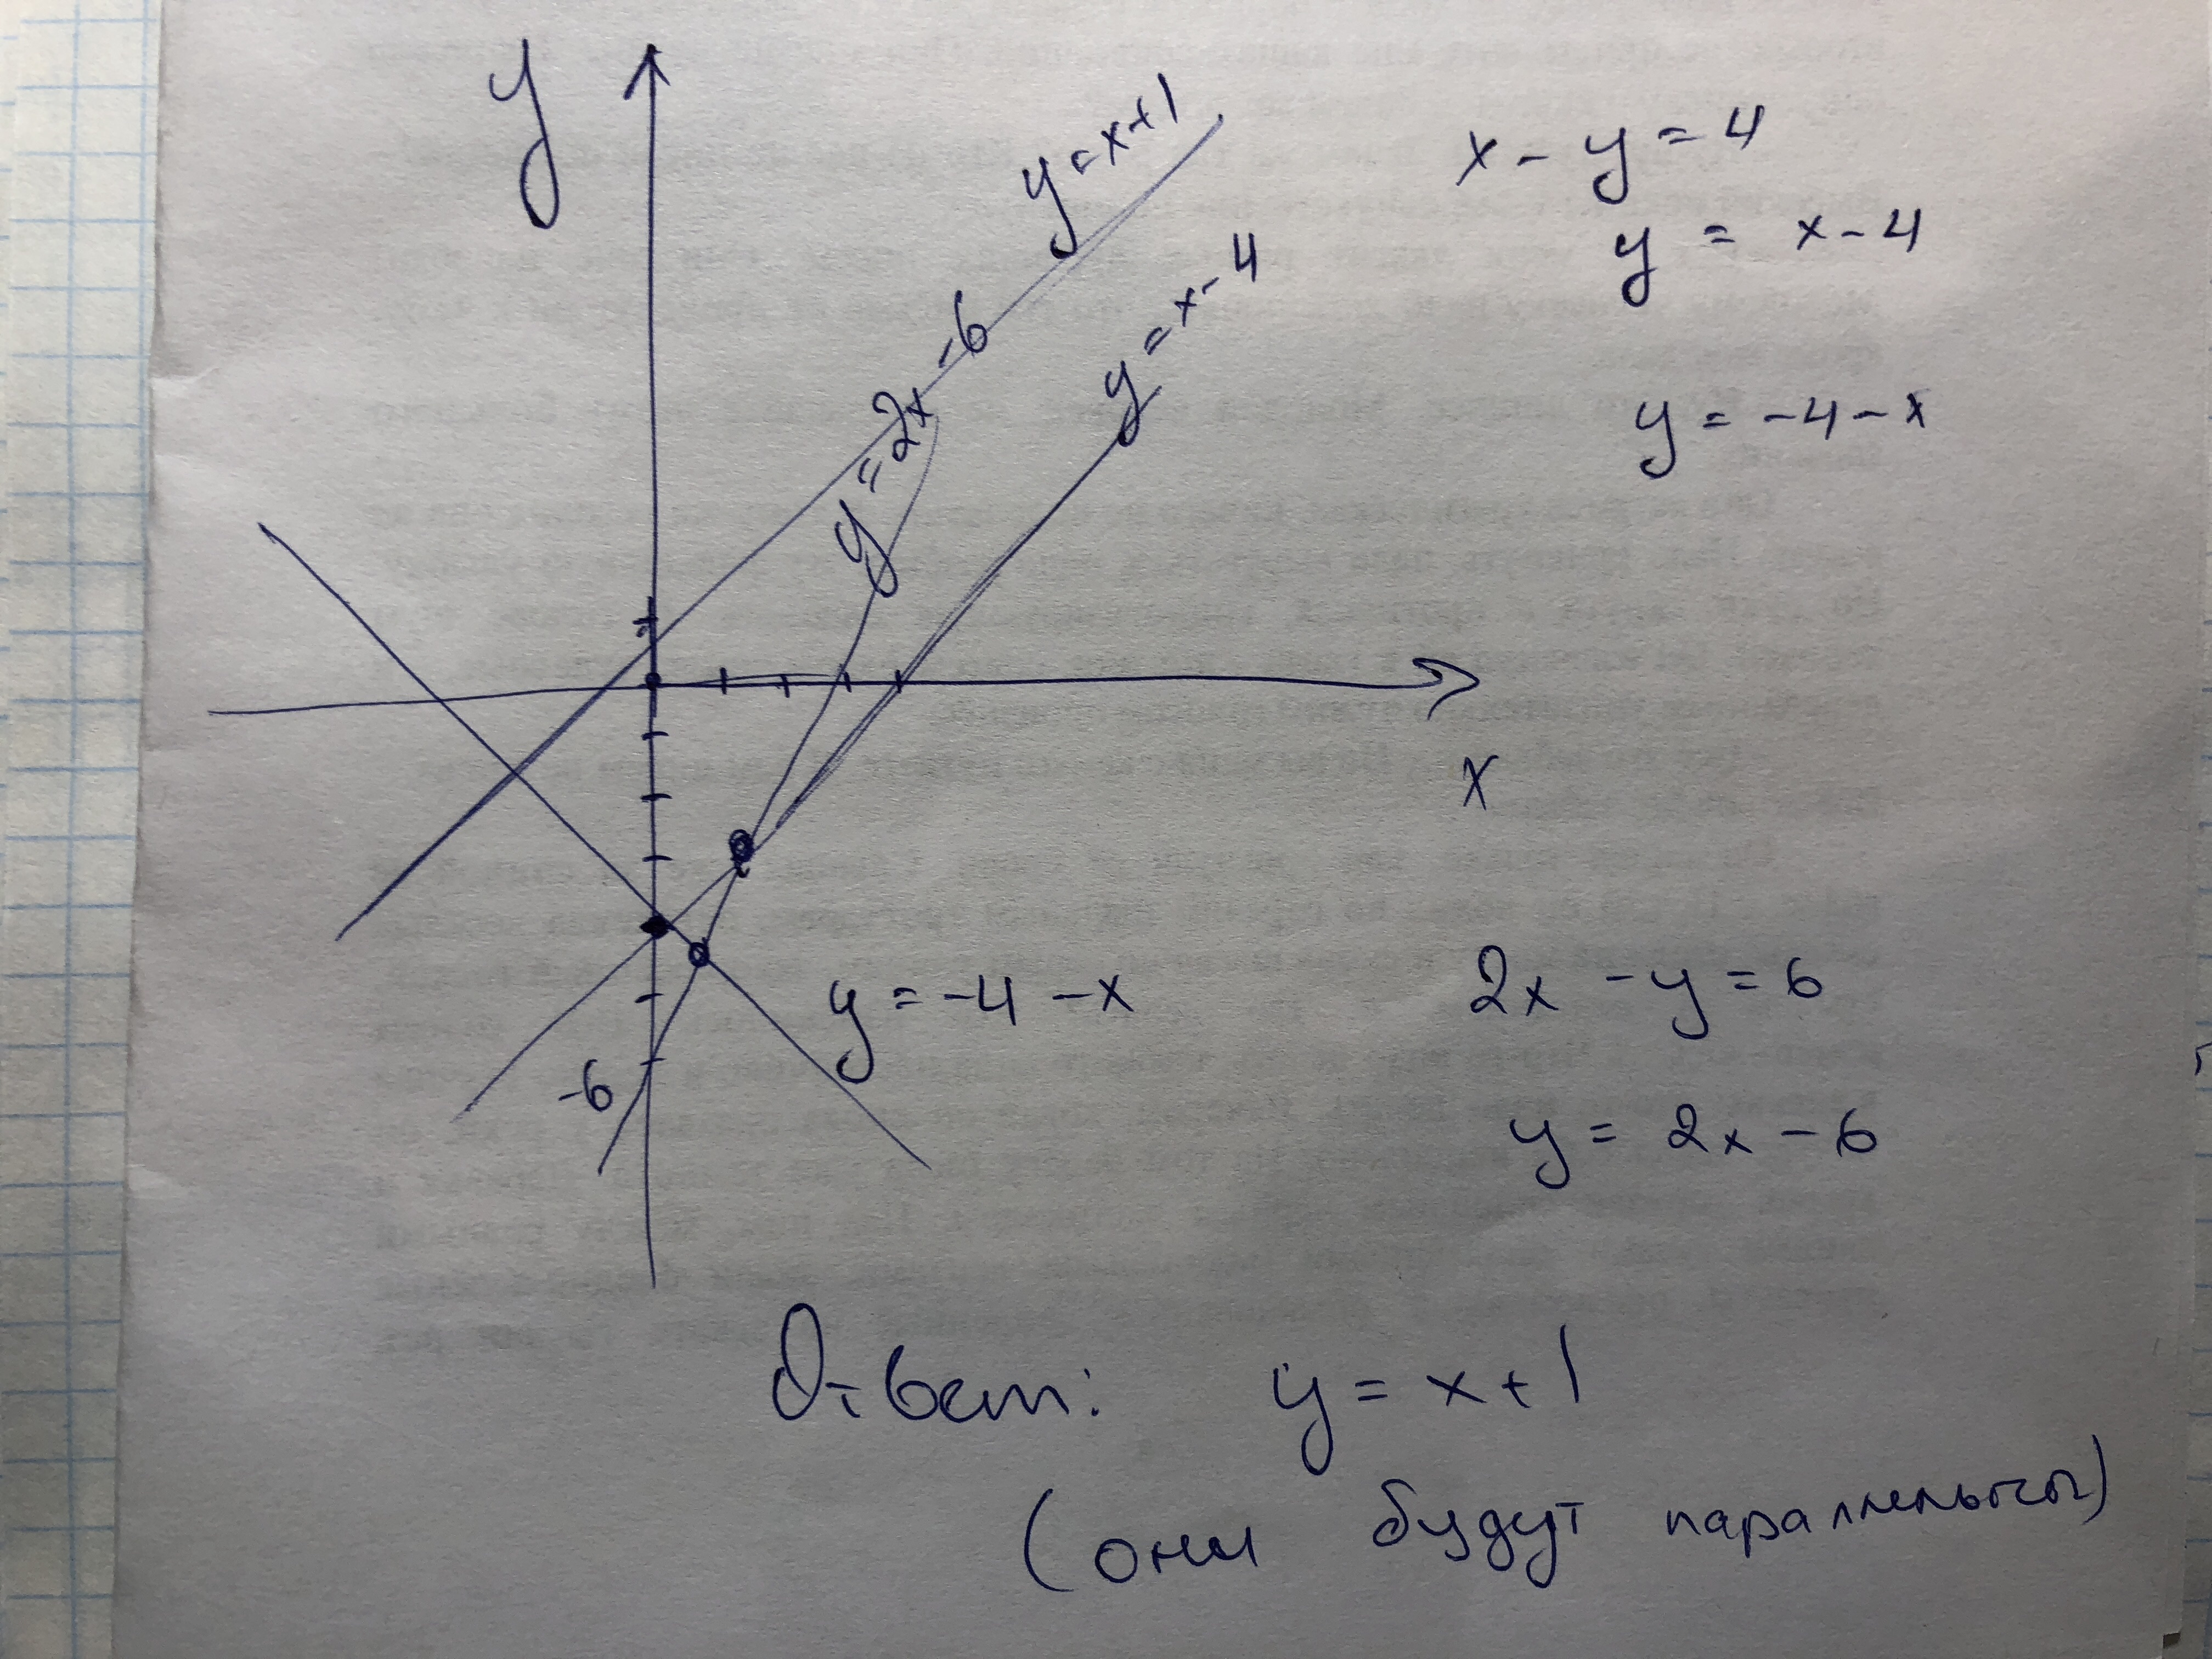 y
y=x+1
x-y=4
y = x-4
y=x-4
y=2x-6
y = -4-x
x
y = -4-x
2x-y=6
-6
y = 2x-6
Ответ: y = x+1
(они будут параллельны)